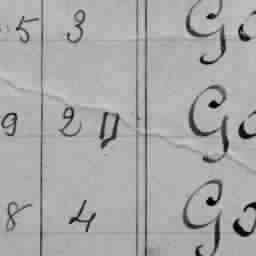 5 3 Go
9 2 Go
8 4 Go